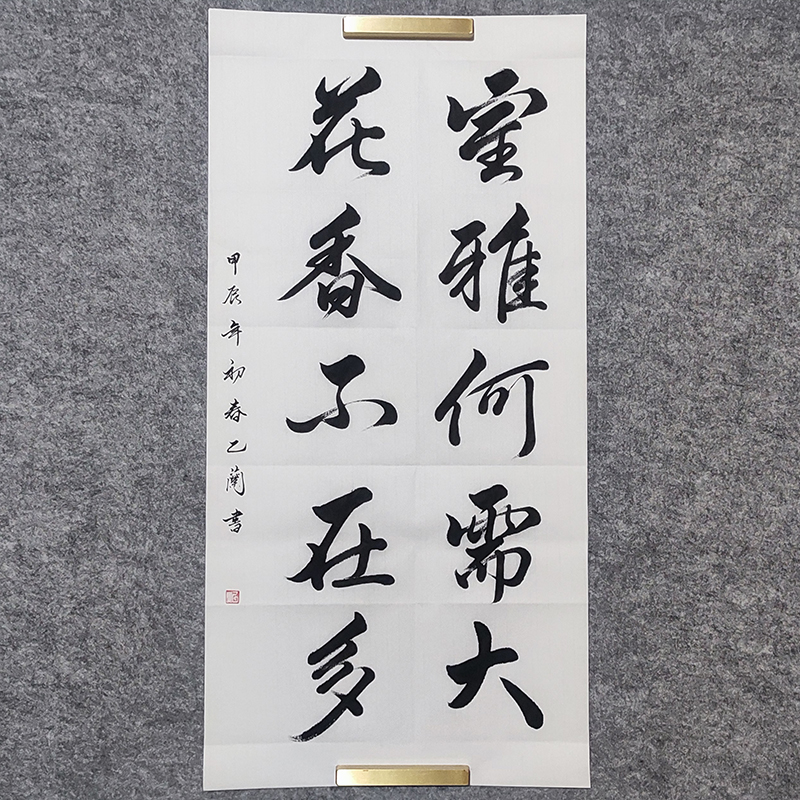 室雅何需大
花香不在多
甲辰年初春乙蘭書